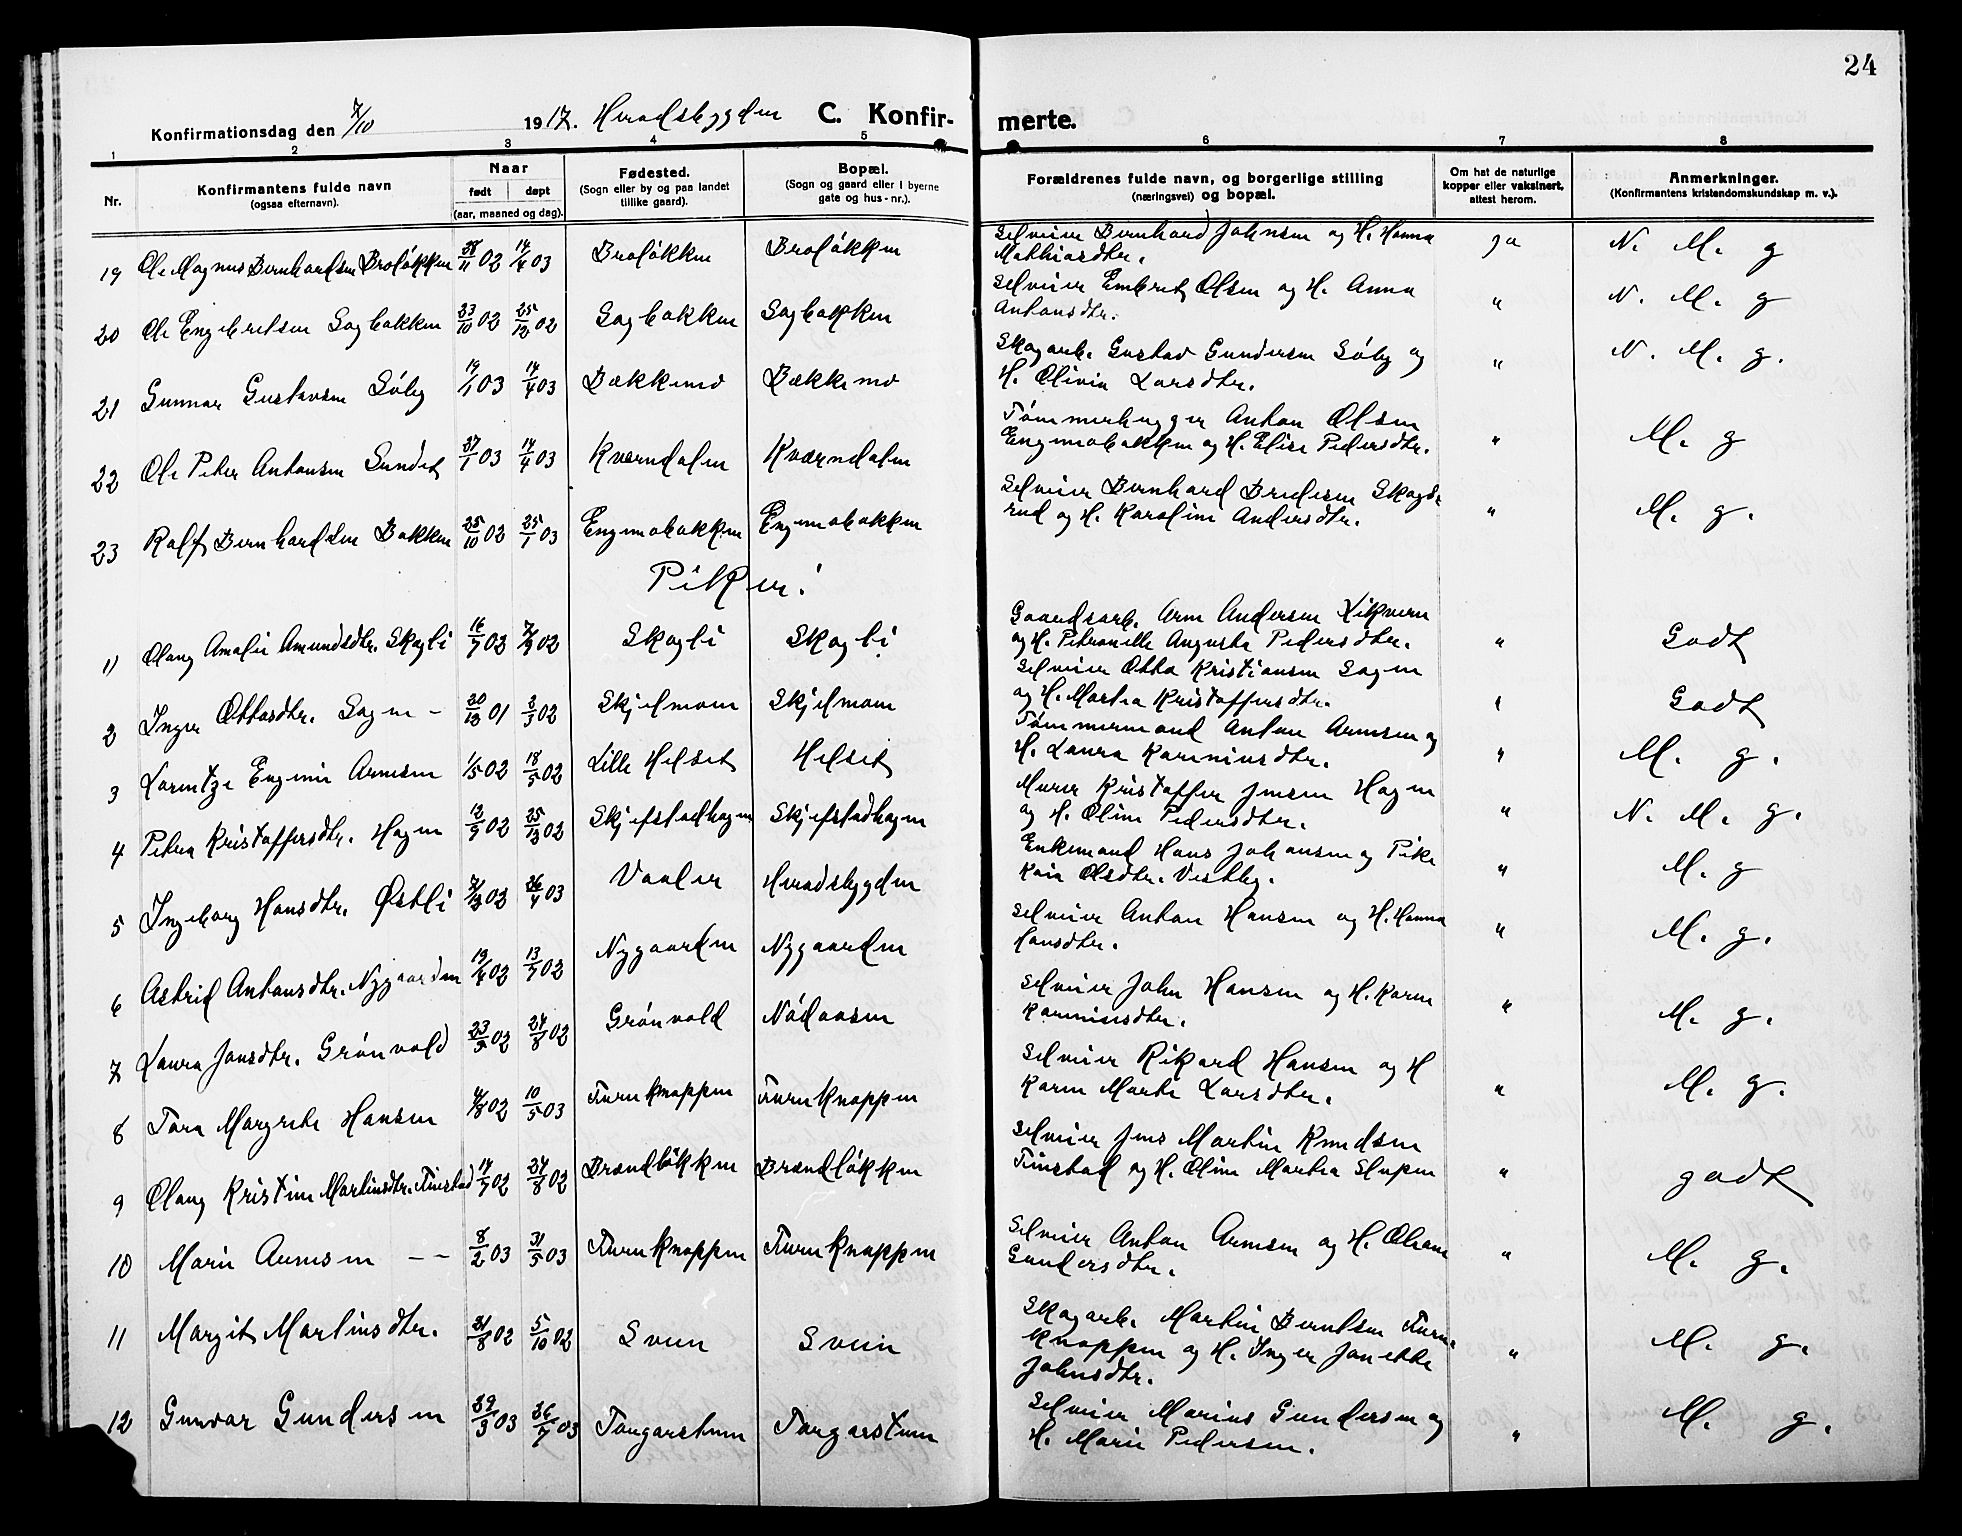 24
Konfirmationsdag den 7/10 1917. Heradsbygden C. Konfir-merte.
1 2 3 4 5 6 7 8
Nr. Konfirmantens fulde navn (ogsaa efternavn). Naar født døpt (aar, maaned og dag). Fødested. (Sogn eller by og paa landet tillike gaard). Bopæl. (Sogn og gaard eller i byerne gate og hus-nr.). Forældrenes fulde navn, og borgerlige stilling (næringsvei) og bopæl. Om hat de naturlige kopper eller vaksinert, attest herom. Anmerkninger. (Konfirmantens kristendomskundskap m. v.).
19 Ole Magnus Bernhardsen Broløkken 28/11 02 14/4 03 Broløkken Broløkken Selveier Bernhard Johnsen og H. Hanna Mathiasdtr. ja N. M. g
20 Ole Engebretsen Sagbakken 23/10 02 25/12 02 Sagbakken Sagbakken Selveier Embret Olsen og H. Anna Antonsdtr. " N. M. g
21 Gunnar Gustavsen Søby 19/1 03 14/4 03 Bækkemo Bækkemo Skogarb. Gustav Gundersen Søby og H. Olivia Larsdtr. " N. M. g.
22 Ole Peter Antonsen Sundet 27/1 03 14/4 03 Kværndalen Kværndalen Tømmerhugger Anton Olsen Engmobakken og H. Elise Pedersdtr. " M. g
23 Ralf Bernhardsen Bakken 25/10 02 25/1 03 Engmobakken Engmobakken Selveier Bernhard Bredesen Skogsrud og H. Karoline Andersdtr. " M. g.
Piker:
1) Olaug Amalie Amundsdtr. Skogli 16/7 02 7/9 02 Skogli Skogli Gaardsarb. Arne Andersen Likvern og H. Petronille Augusta Pedersdtr. " Godt
2 Inger Ottosdtr. Sagen - 30/12 01 2/3 02 Skjelmoen Skjelmoen Selveier Otto Kristiansen Sagen og H. Martea Kristoffersdtr. " Godt
3 Lorentze Engenie Arnesen 1/5 02 18/5 02 Lille Helset Helset Tømmermand Anton Arnesen og H. Laura Kareniusdtr. " M. g.
4 Petra Kristoffersdtr. Hagen 12/9 02 25/12 02 Skjefstadhagen Skjefstadhagen Murer Kristoffer Jensen Hagen og H. Oline Pedersdtr. " N. M. g.
5 Ingeborg Hansdtr. Østli 7/12 02 26/4 03 Vaaler Heradsbygden Enkemand Hans Johansen og Pike Kaia Olsdtr. Vestby. " M. g
6 Astrid Antonsdtr. Nygaarden 19/4 02 13/7 02 Nygaarden Nygaarden Selveier Anton Hansen og H. Hanna Hansdtr. " M. g.
7 Laura Jonsdtr. Grønvold 23/5 02 24/8 02 Grønvold Nødaasen Selveier John Hansen og H. Karen Kareniusdtr. " M. g.
8 Tora Margrete Hansen 4/8 02 10/5 03 Furuknappen Furuknappen Selveier Rikard Hansen og H Karen Marte Larsdtr. " M. g.
9 Olaug Kristine Martinsdtr. Finstad 14/7 02 24/8 02 Brændløkken Brændløkken Selveier Jens Martin Knudsen Finstad og H. Oline Martea Slupen " godt
10 Marie Arnesen - - 8/2 03 31/5 03 Furuknappen Furuknappen Selveier Anton Arnesen og H. Oleane Gundersdtr. " M. g.
11 Margit Martinsdtr. 31/8 02 5/10 02 Sveen Sveen Skogarb. Martin Berntsen Furuknappen og H. Inger Janette Johnsdtr. " M. g.
12 Gunvor Gundersen 29/3 03 26/7 03 Torgarstuen Torgarstuen Selveier Marius Gundersen og H. Marie Pedersen. " M. g.